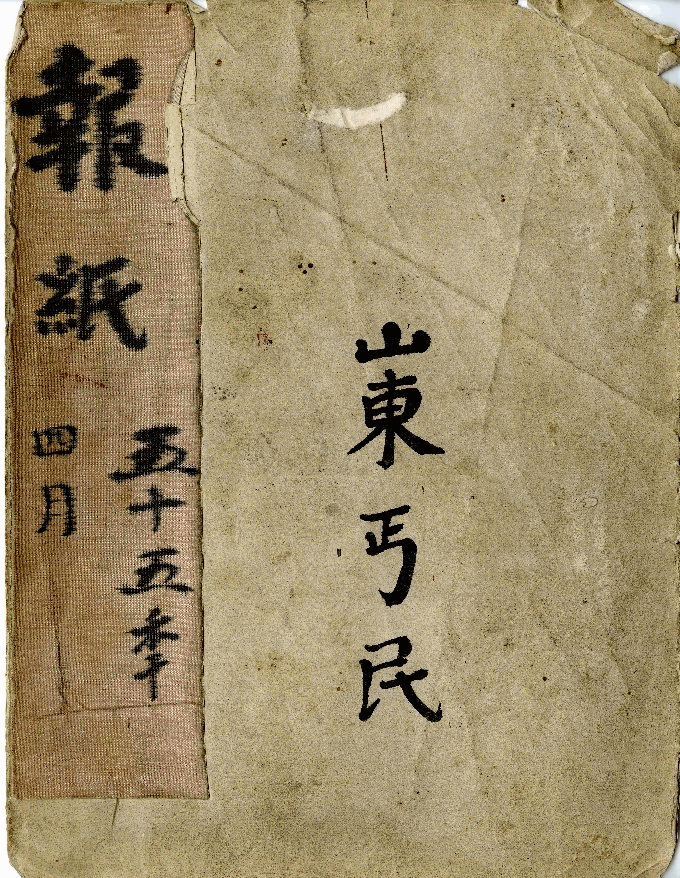 山東丐民
報紙
五十五秊
四月